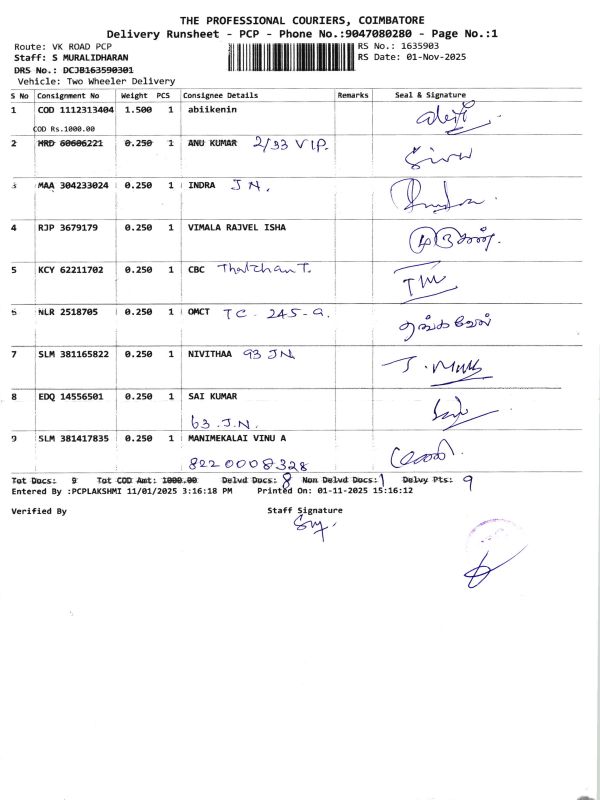 THE PROFESSIONAL COURIERS, COIMBATORE
Delivery Runsheet - PCP - Phone No.:9047080280 - Page No.:1
Route: VK ROAD PCP RS No.: 1635903
Staff: S MURALIDHARAN RS Date: 01-Nov-2025
DRS No.: DCJB163590301
Vehicle: Two Wheeler Delivery
S No Consignment No Weight PCS Consignee Details Remarks Seal & Signature
1 COD 1112313404 1.500 1 abiikenin
COD Rs.1000.00
2 MRD 60606221 0.250 1 ANU KUMAR 2/33 V I P.
3 MAA 304233024 0.250 1 INDRA J N.
4 RJP 3679179 0.250 1 VIMALA RAJVEL ISHA
5 KCY 62211702 0.250 1 CBC Thatchan T.
6 NLR 2518705 0.250 1 OMCT TC - 245-A. தங்கவேல்
7 SLM 381165822 0.250 1 NIVITHAA 93 JN
8 EDQ 14556501 0.250 1 SAI KUMAR
63 J.N.
9 SLM 381417835 0.250 1 MANIMEKALAI VINU A
8220008328
Tot Docs: 9 Tot COD Amt: 1000.00 Delvd Docs: 8 Non Delvd Docs: 1 Delvy Pts: 9
Entered By :PCPLAKSHMI 11/01/2025 3:16:18 PM Printed On: 01-11-2025 15:16:12
Verified By Staff Signature